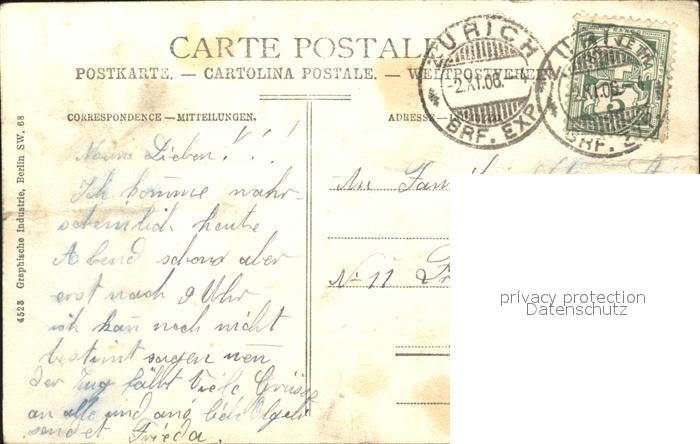 CARTE POSTALE
POSTKARTE. — CARTOLINA POSTALE. — WELTPOSTVEREIN
CORRESPONDENCE — MITTEILUNGEN.
4523 Graphische Industrie, Berlin SW. 68
ZURICH
-2.XI.06.
BRF. EXP.
ZURICH
XI.06
BRF. EXP.
5
Meine Lieben!!!
Ich komme wahr-
scheinlich heute
Abend schon aber
erst nach 9 Uhr
ich kan noch nicht
bestimt sagen wen
der Zug fählt Viele Grüsse
an alle und ans liebe Olgeli
sendet Frieda.
An Fam
No 11
privacy protection
Datenschutz